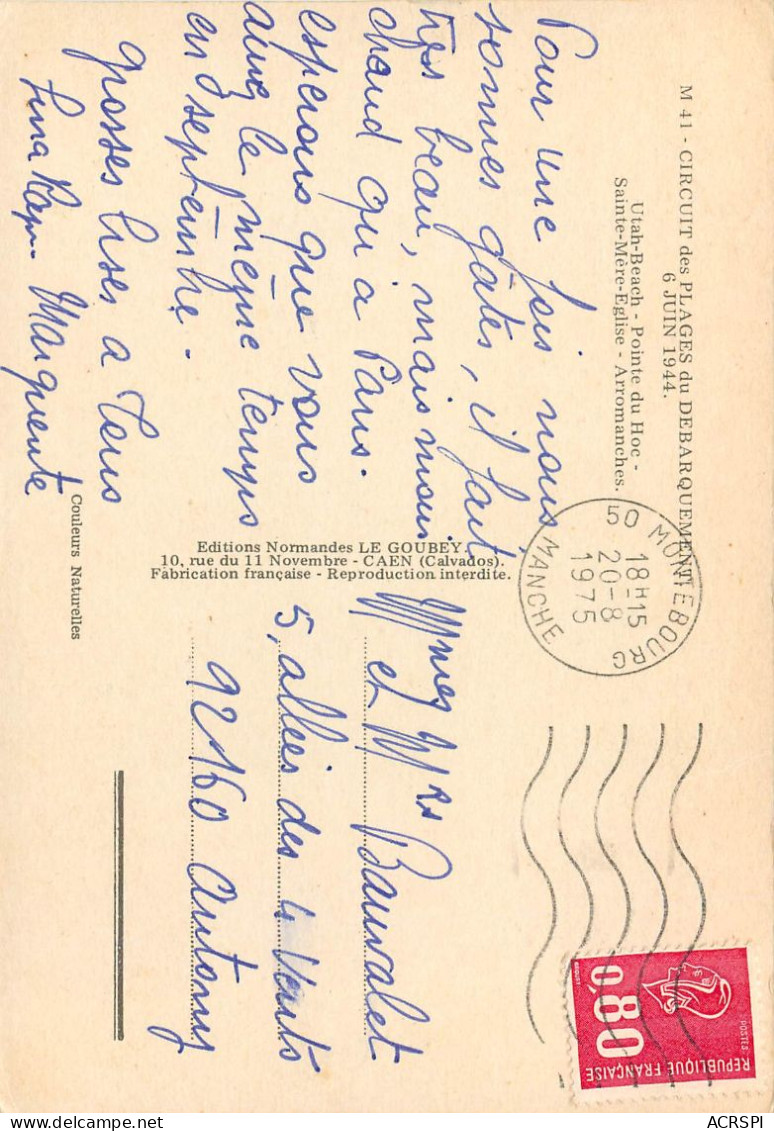 M 41 - CIRCUIT des PLAGES du DEBARQUEMENT
6 JUIN 1944.
Utah-Beach - Pointe du Hoc -
Sainte-Mère-Eglise - Arromanches.
Pour une fois nous
sommes gâtés, il fait
très beau, mais moins
chaud qu'a Paris.
esperons que vous
aurez le même temps
en septembre -
grosses bises a tous
Marguerite
Couleurs Naturelles
Editions Normandes LE GOUBEY.
10, rue du 11 Novembre - CAEN (Calvados).
Fabrication française - Reproduction interdite.
50 MONTEBOURG
18H15
20-8
1975
MANCHE
0,80
POSTES
REPUBLIQUE FRANÇAISE
Mmes Mrs
et Bauvalet
5, allées des 4 Vents
92160 Antony
ACRSPI